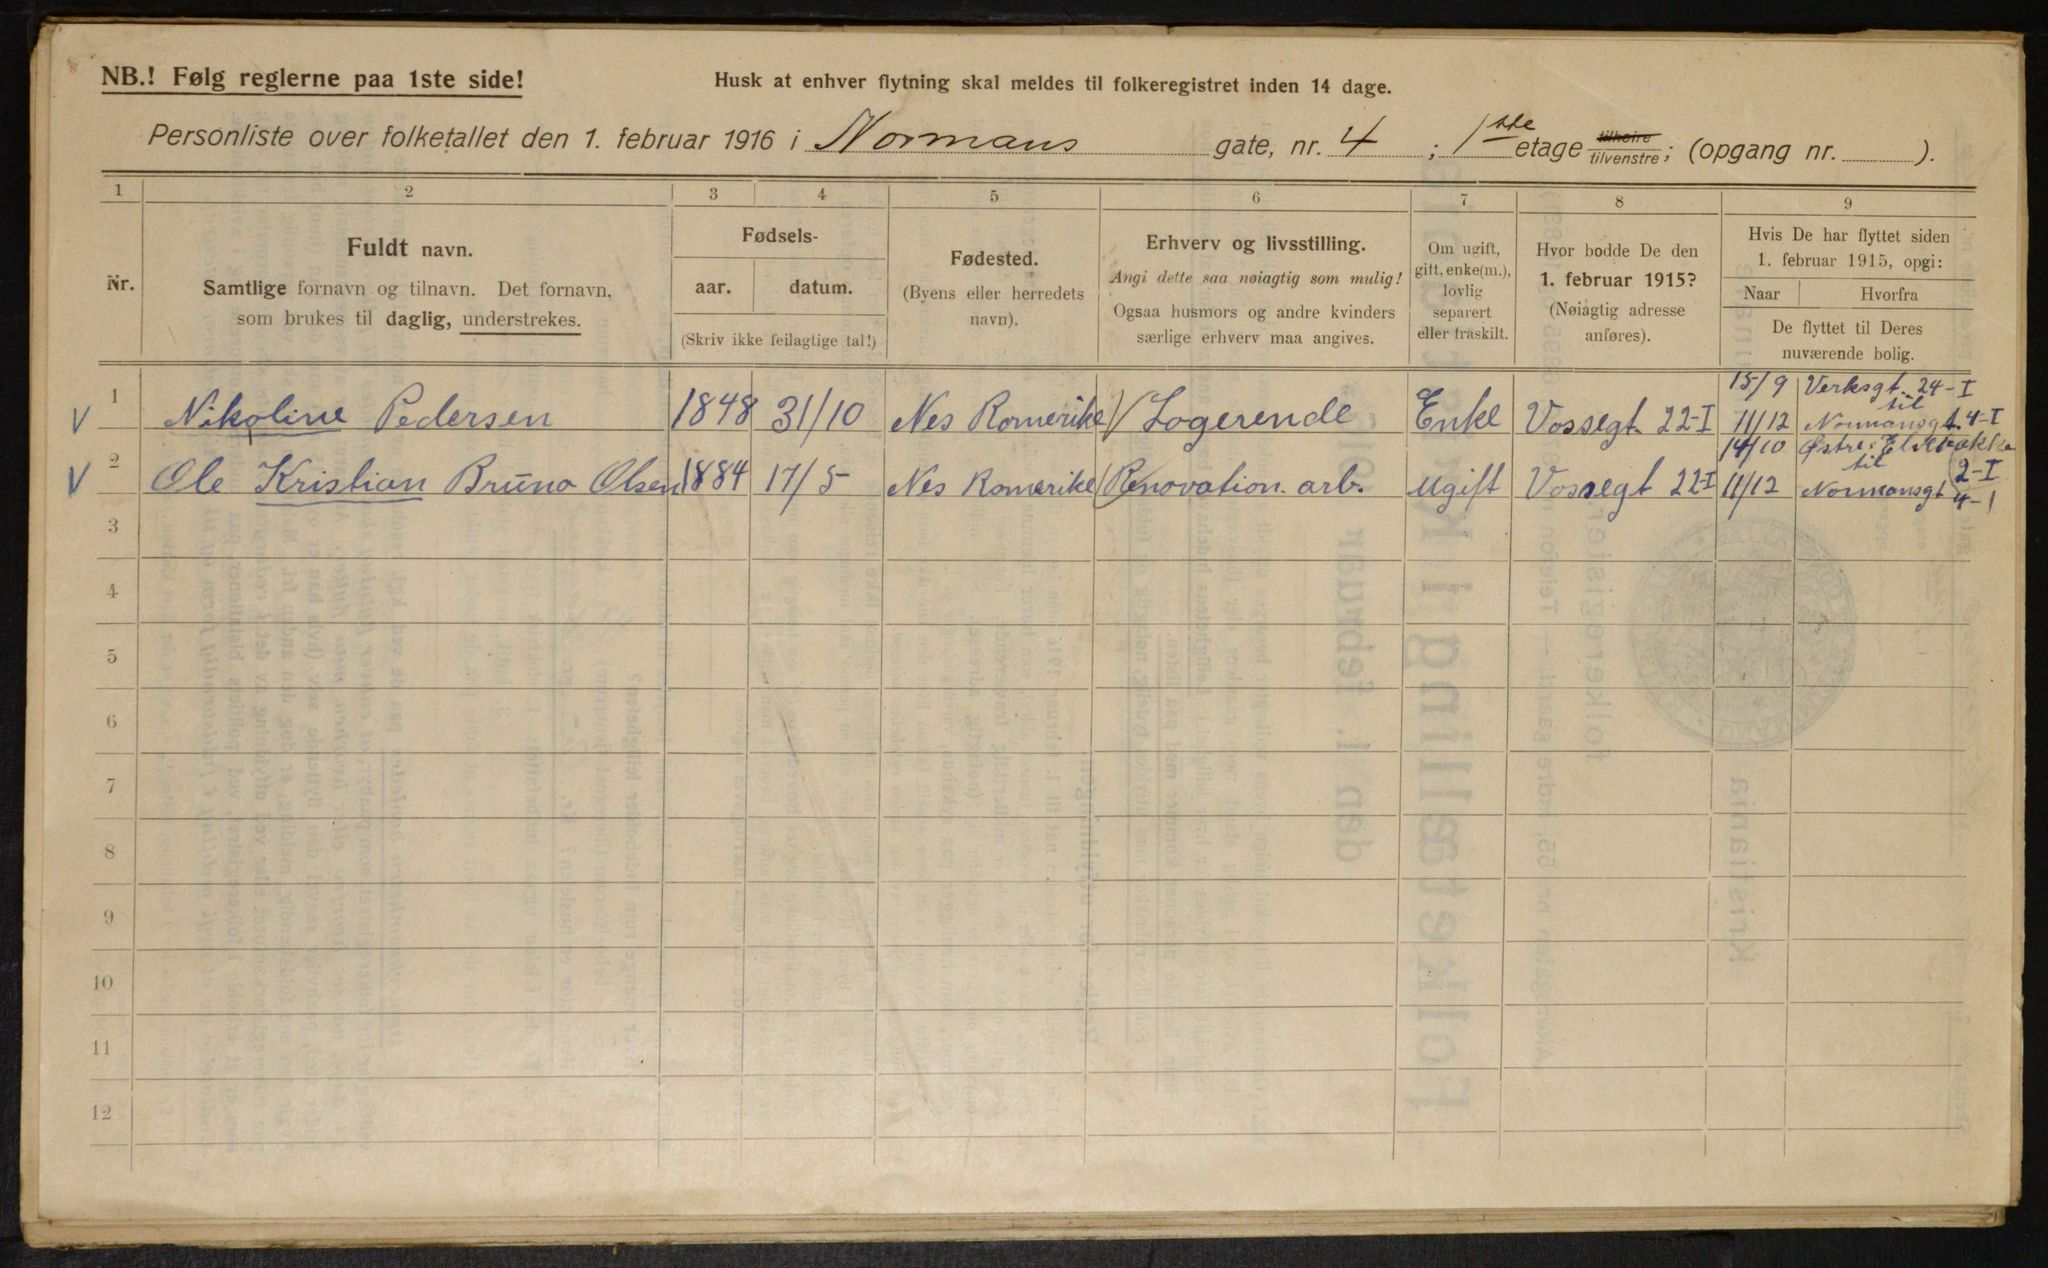 NB.! Følg reglerne paa 1ste side!
Husk at enhver flytning skal meldes til folkeregistret inden 14 dage.
Personliste over folketallet den 1. februar 1916 i Normans gate, nr. 4 ; 1ste etage tilhøire/tilvenstre; (opgang nr. ).
1 2 3 4 5 6 7 8 9
Nr.
Fuldt navn.
Samtlige fornavn og tilnavn. Det fornavn,
som brukes til daglig, understrekes.
Fødsels-
aar. datum.
(Skriv ikke feilagtige tal!)
Fødested.
(Byens eller herredets
navn).
Erhverv og livsstilling.
Angi dette saa nøiagtig som mulig!
Ogsaa husmors og andre kvinders
særlige erhverv maa angives.
Om ugift,
gift, enke(m.),
lovlig
separert
eller fraskilt.
Hvor bodde De den
1. februar 1915?
(Nøiagtig adresse
anføres).
Hvis De har flyttet siden
1. februar 1915, opgi:
Naar Hvorfra
De flyttet til Deres
nuværende bolig.
15/9 Verksgt. 24-I
til
V 1 Nikoline Pedersen 1848 31/10 Nes Romerike V Logerende Enke Vossegt. 22-I 11/12 Normansgt. 4-I
14/10 Østre Elvebakke
til 2-I
V 2 Ole Kristian Bruno Olsen 1884 17/5 Nes Romerike Renovation. arb. ugift Vossegt 22-I 11/12 Normansgt 4-I
3
4
5
6
7
8
9
10
11
12